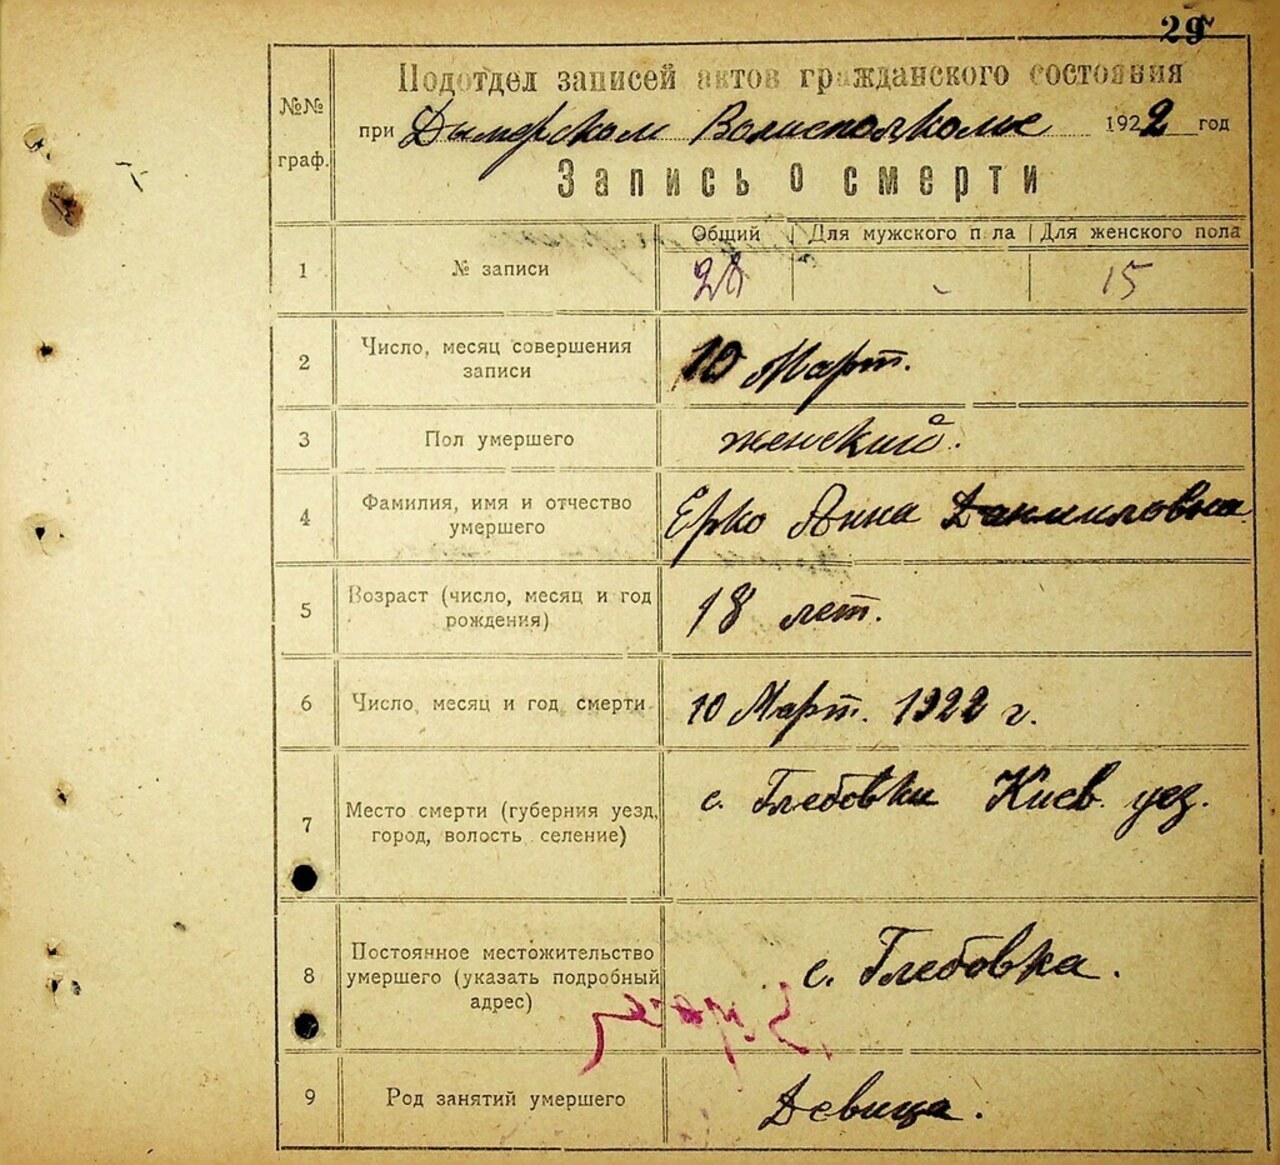 29
№№ граф.
Подотдел записей актов гражданского состояния
при Дымерском Волисполкоме 1922 год
Запись о смерти
Общий Для мужского п ла Для женского пола
1 № записи 28 - 15
2 Число, месяц совершения
записи
10 Март.
3 Пол умершего женский.
4 Фамилия, имя и отчество
умершего
Ерко Анна Даниловна
5 Возраст (число, месяц и год
рождения)
18 лет.
6 Число, месяц и год смерти 10 Март. 1922 г.
7 Место смерти (губерния уезд,
город, волость селение)
с. Глебовки Киев. уез.
8 Постоянное местожительство
умершего (указать подробный
адрес)
с. Глебовка.
9 Род занятий умершего Девица.